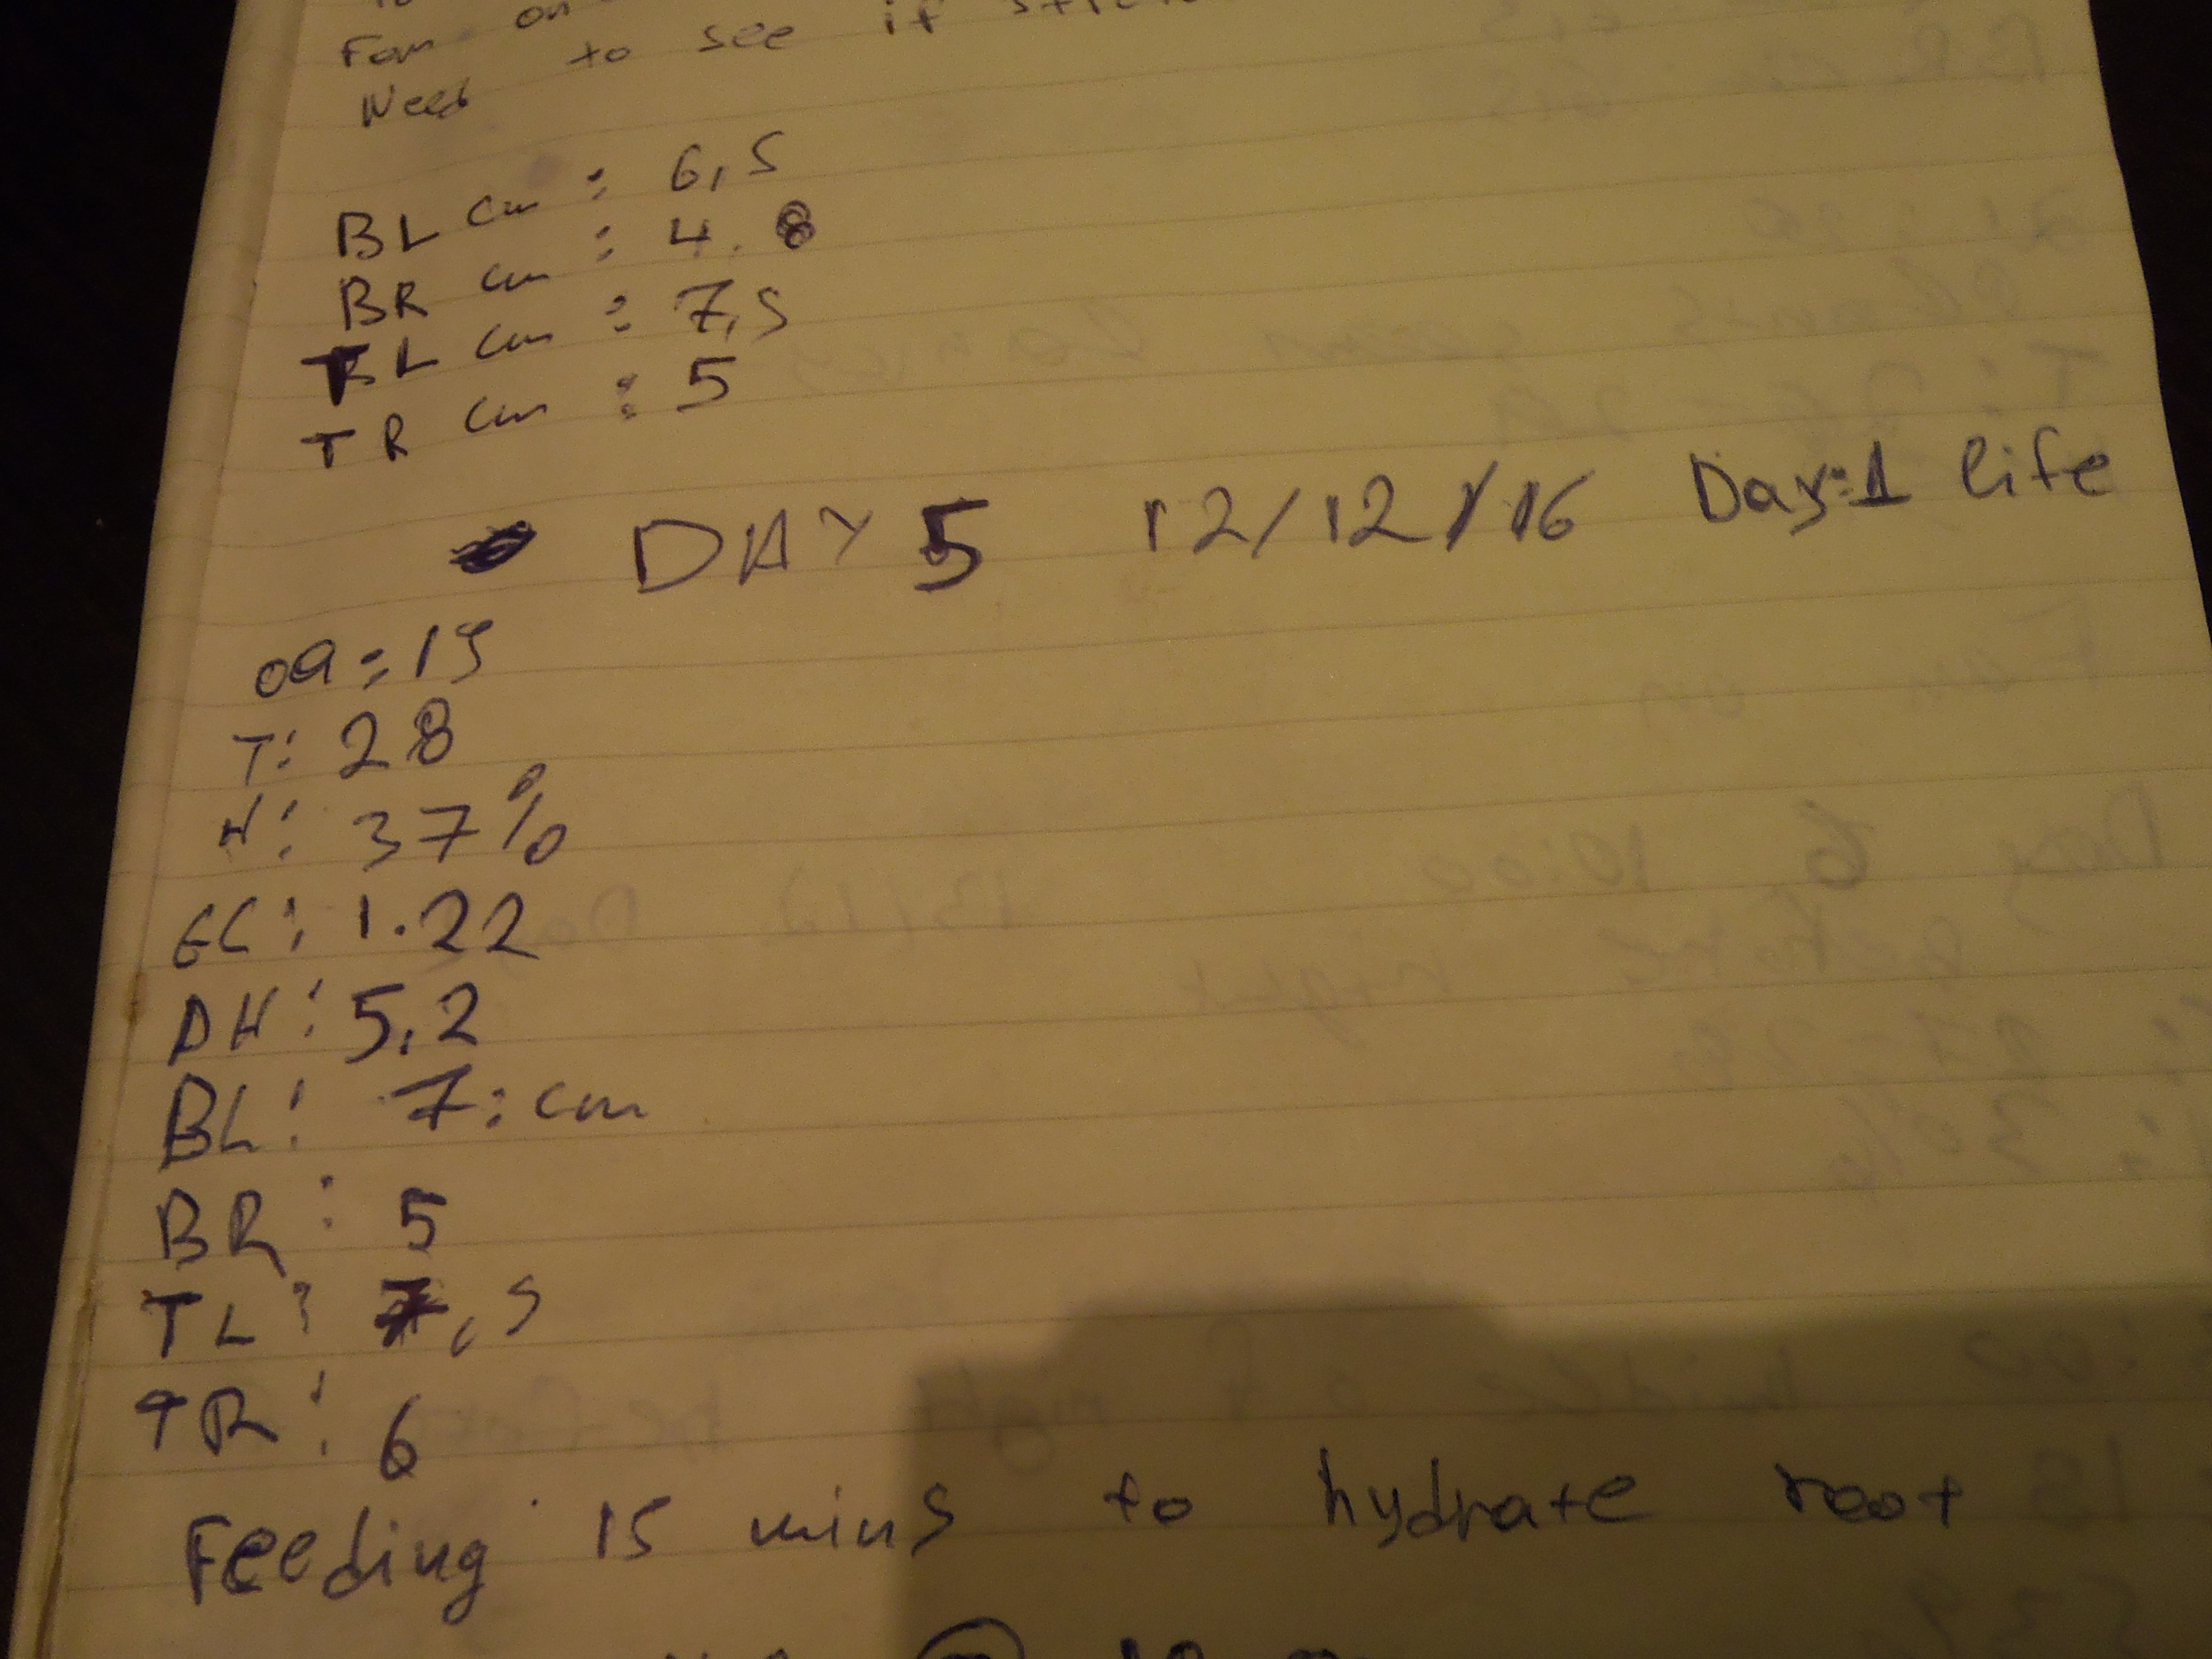 Fan on
Need to see if
BL cm : 6,5
BR cm : 4.8
TL cm : 7,5
TR cm : 5
DAY 5 12/12/16 Day:1 life
09:15
T: 28
H: 37%
EC: 1.22
PH: 5,2
BL: 7:cm
BR: 5
TL: 7,5
TR: 6
Feeding 15 mins to hydrate root